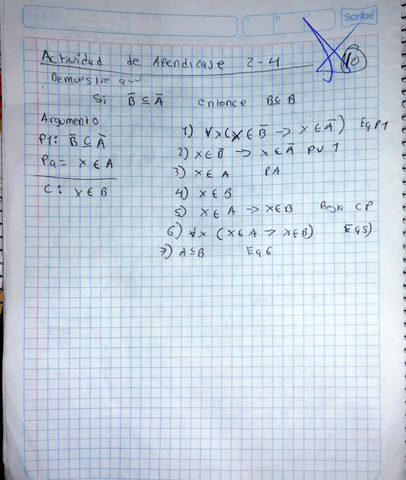 Scribe
10
Actividad de Apendizaje 2-4
Demuestre que
Si B̄ ⊆ Ā entonce B⊆ B
Argumento
P1: B̄ ⊆ Ā
Pa = x ∈ A
C: x ∈ B
1) ∀x(x ∈ B̄ → x ∈ Ā) Eq P1
2) x ∈ B̄ → x ∈ Ā PU 1
3) x ∈ A PA
4) x ∈ B
5) x ∈ A → x ∈ B Regla CP
6) ∀x (x ∈ A → x ∈ B) Eq 5)
7) A ⊆ B Eq 6